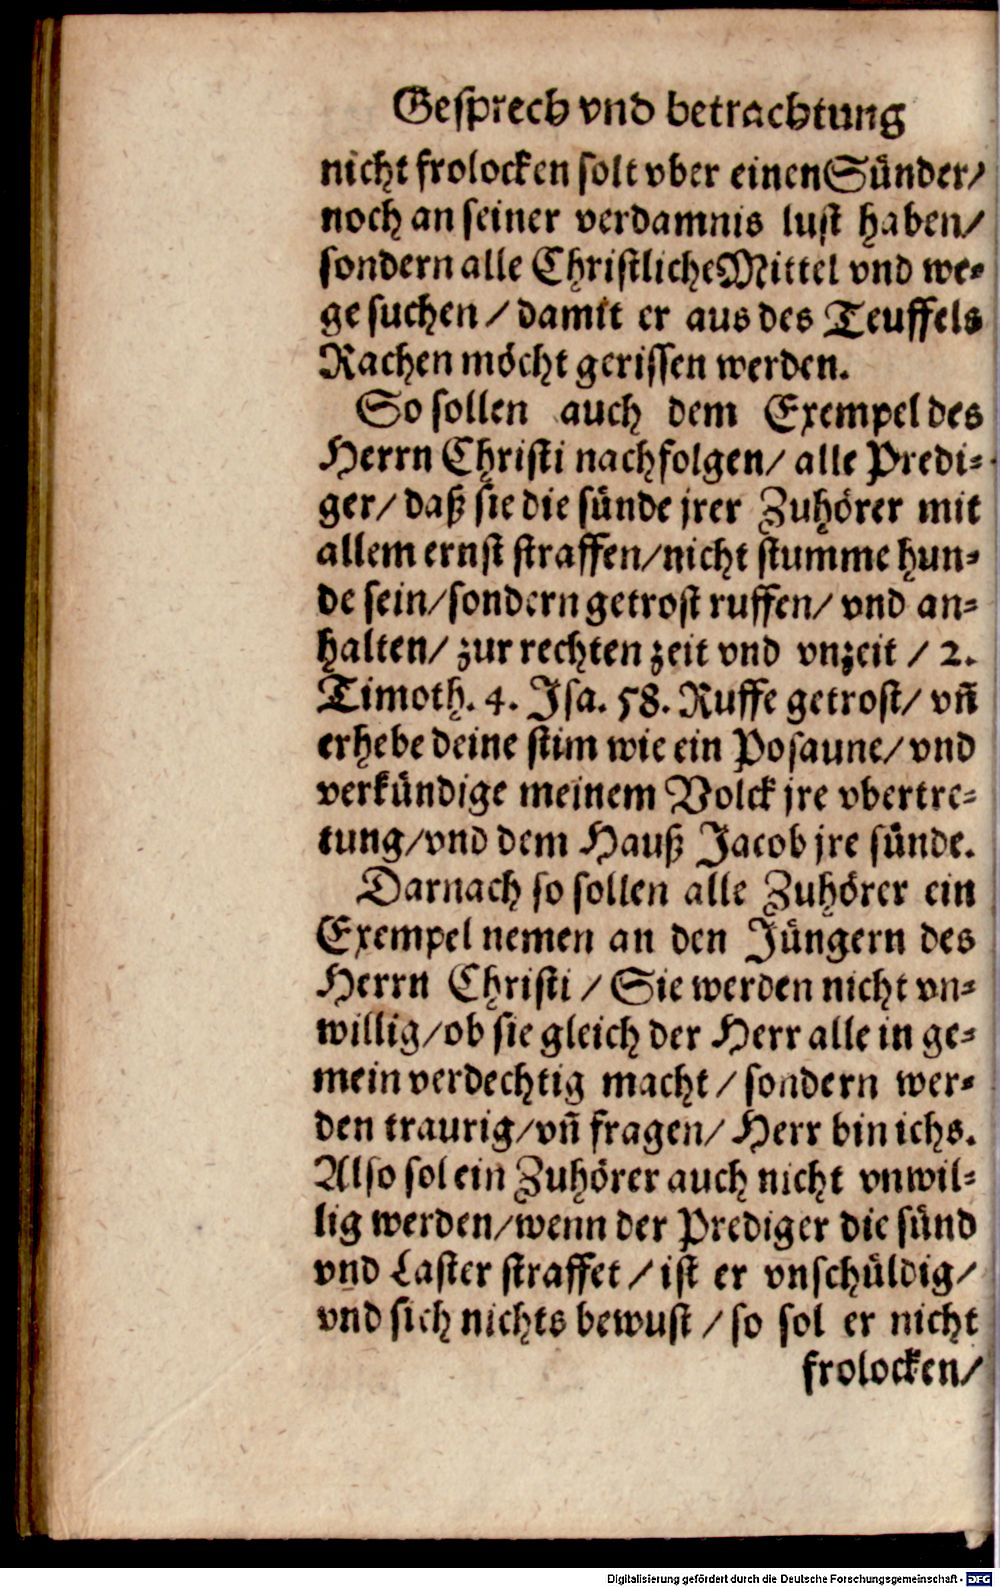 Gesprech vnd betrachtung
nicht frolocken solt vber einen Sünder/
noch an seiner verdamnis lust haben/
sondern alle Christliche Mittel vnd we-
ge suchen / damit er aus des Teuffels
Rachen möcht gerissen werden.
So sollen auch dem Exempel des
Herrn Christi nachfolgen/ alle Predi-
ger/ daß sie die sünde jrer Zuhörer mit
allem ernst straffen/nicht stumme hun-
de sein/sondern getrost ruffen/ vnd an-
halten/ zur rechten zeit vnd vnzeit / 2.
Timoth. 4. Jsa. 58. Ruffe getrost/ vñ
erhebe deine stim wie ein Posaune/ vnd
verkündige meinem Volck jre vbertre-
tung/vnd dem Hauß Jacob jre sünde.
Darnach so sollen alle Zuhörer ein
Exempel nemen an den Jüngern des
Herrn Christi / Sie werden nicht vn-
willig/ob sie gleich der Herr alle in ge-
mein verdechtig macht / sondern wer-
den traurig/vñ fragen/ Herr bin ichs.
Also sol ein Zuhörer auch nicht vnwil-
lig werden/wenn der Prediger die sünd
vnd Laster straffet / ist er vnschüldig/
vnd sich nichts bewust / so sol er nicht
frolocken/
Digitalisierung gefördert durch die Deutsche Forschungsgemeinschaft - DFG